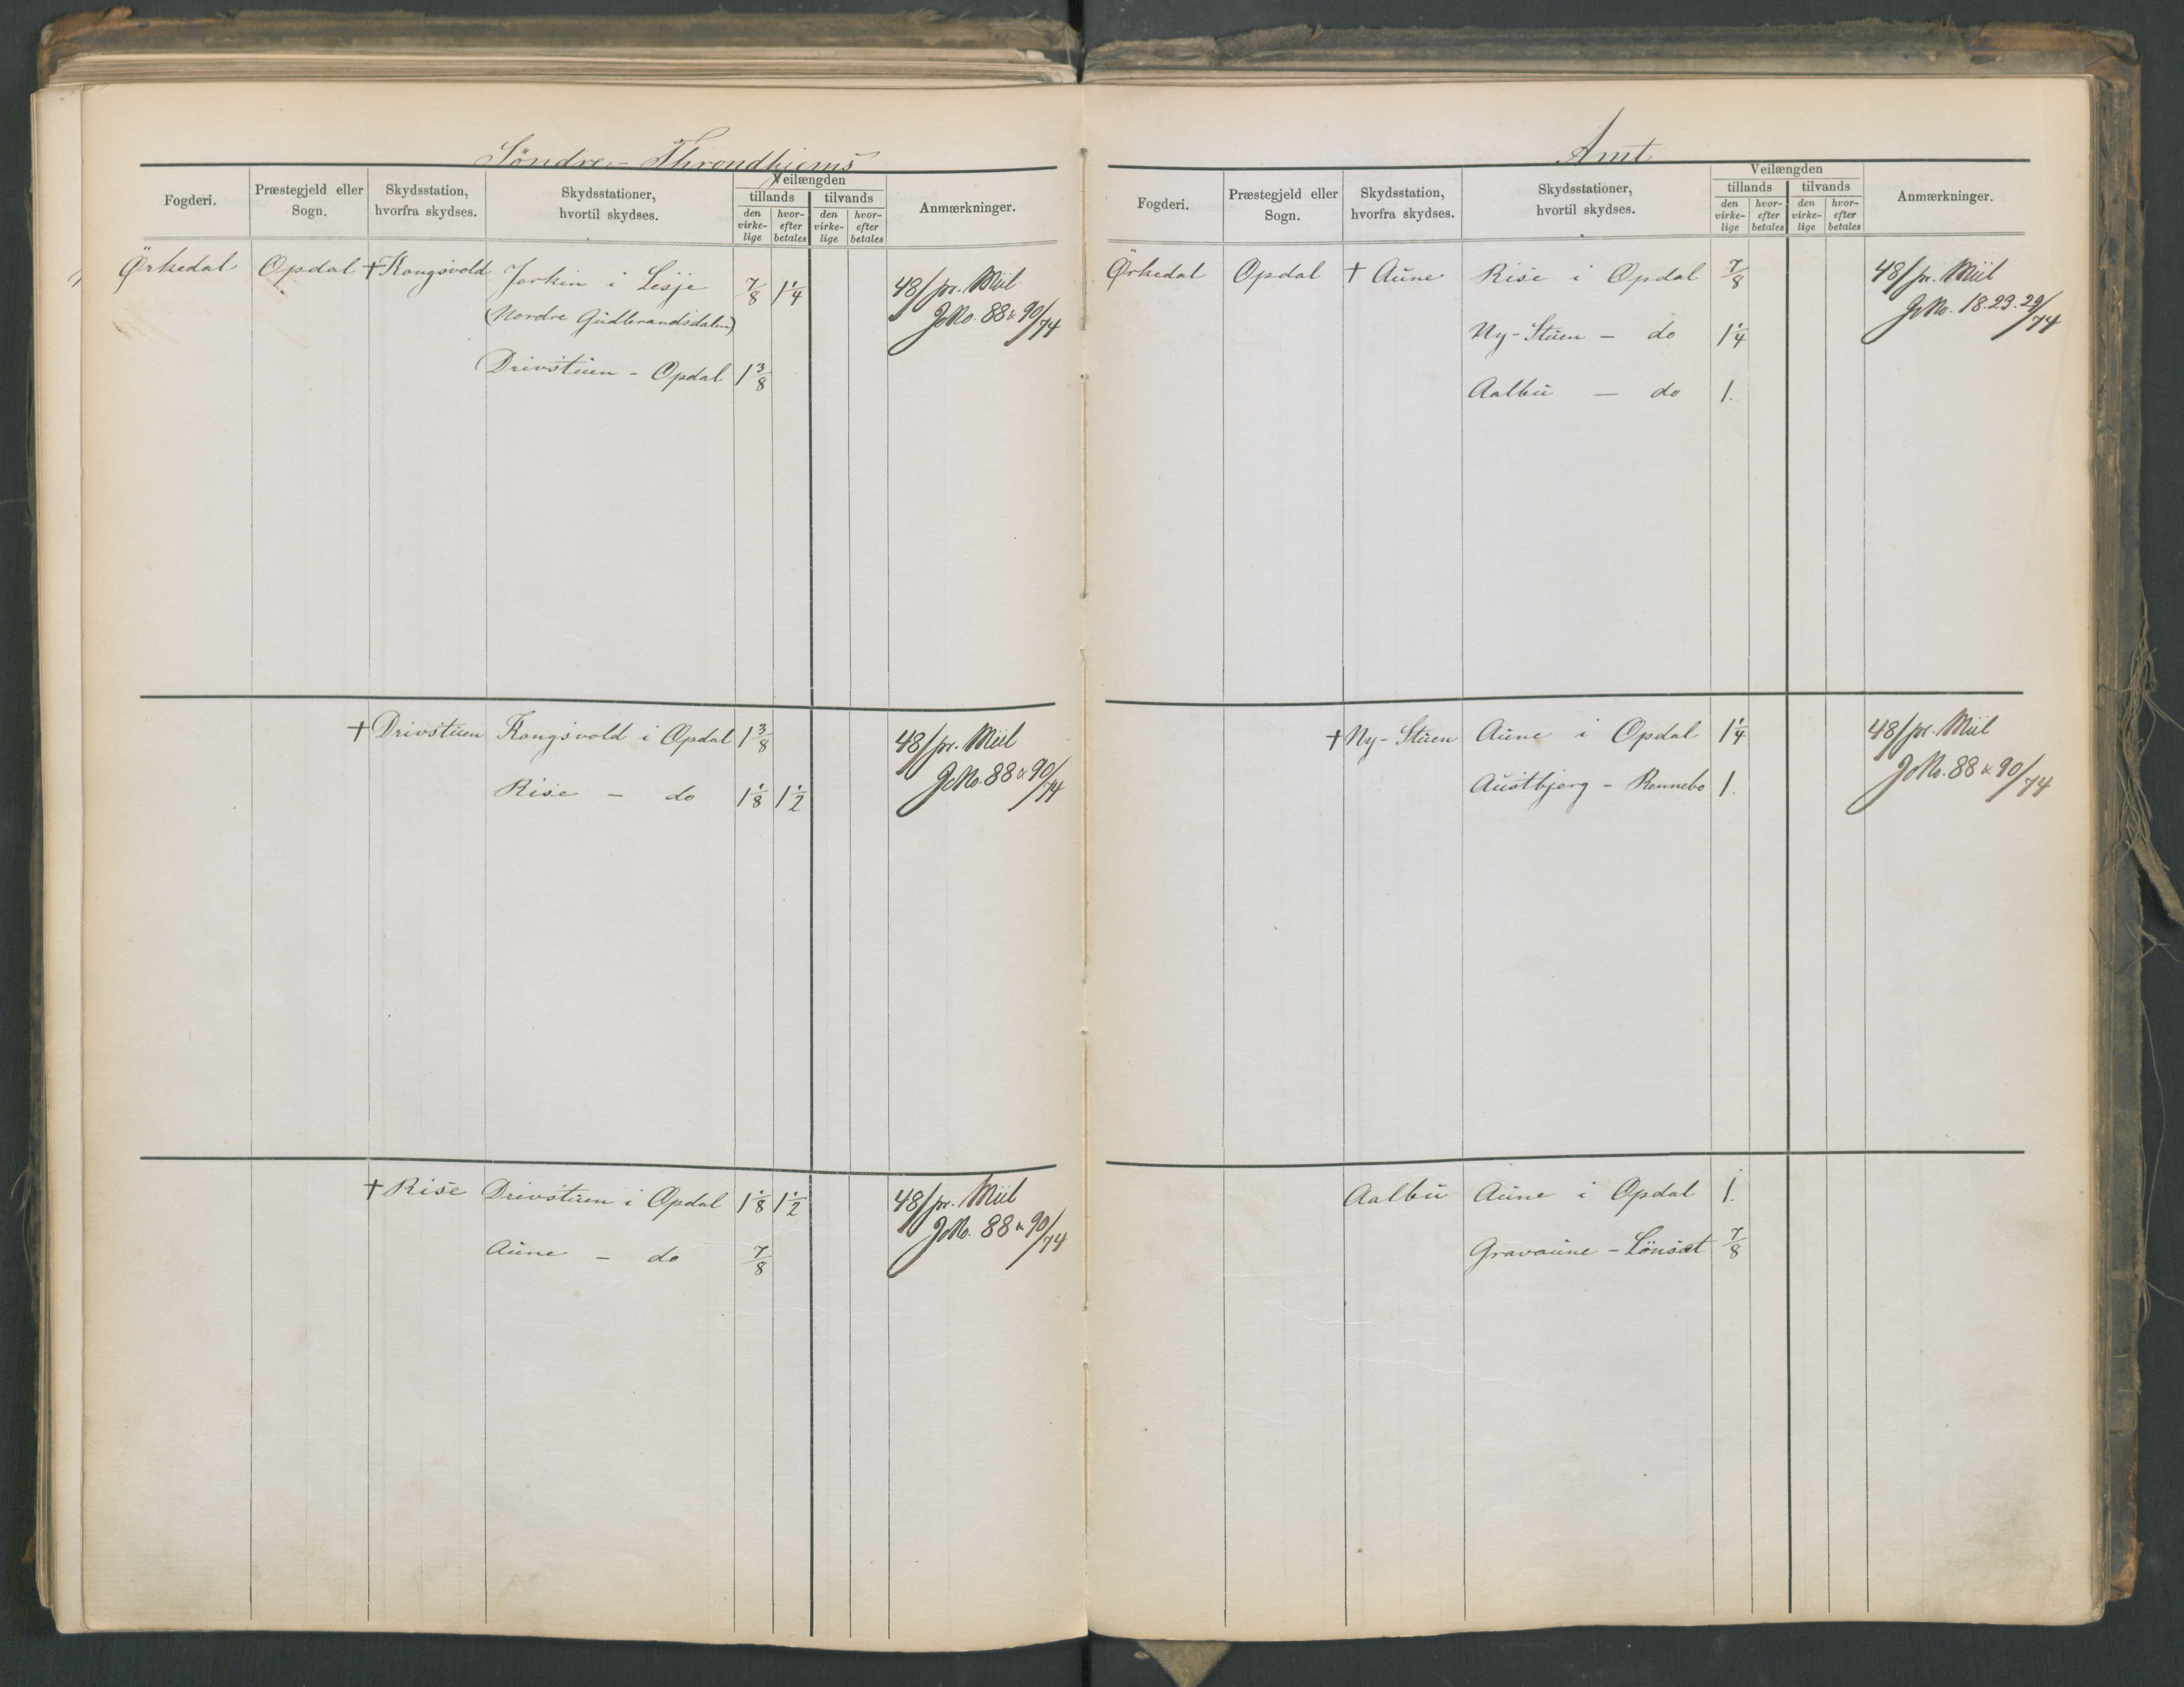 Söndre - Throndhjems
Fogderi.
Præstegjeld eller Sogn.
Skydsstation, hvorfra skydses.
Skydsstationer, hvortil skydses.
Veilængden
tillands
tilvands
den virkelige
hvorefter betales
den virkelige
hvorefter betales
Anmærkninger.
Örkedal Opdal † Kongsvold Jerkin i Lesje 7/8 1 1/4 48/ pr. Miil
(Nordre Gudbrandsdalen) JoNo. 88 & 90/74
Drivstuen - Opdal 1 3/8
† Drivstuen Kongsvold i Opdal 1 3/8 48/ pr. Miil
Rise - do 1 1/8 1 1/2 JoNo. 88 & 90/74
† Rise Drivstuen i Opdal 1 1/8 1 1/2 48/ pr. Miil
Aune - do 7/8 JoNo. 88 & 90/74
Amt
Fogderi.
Præstegjeld eller Sogn.
Skydsstation, hvorfra skydses.
Skydsstationer, hvortil skydses.
Veilængden
tillands
tilvands
den virkelige
hvorefter betales
den virkelige
hvorefter betales
Anmærkninger.
Örkedal Opdal † Aune Rise i Opdal 7/8 48/ pr. Miil
JoNo. 18. 23. 29/74
Ny-Stuen - do 1 1/4
Aalbu - do 1.
† Ny-Stuen Aune i Opdal 1 1/4 48/ pr. Miil
Austbjerg - Rennebo 1. JoNo. 88 & 90/74
Aalbu Aune i Opdal 1.
Gravaune - Lönsæt 7/8